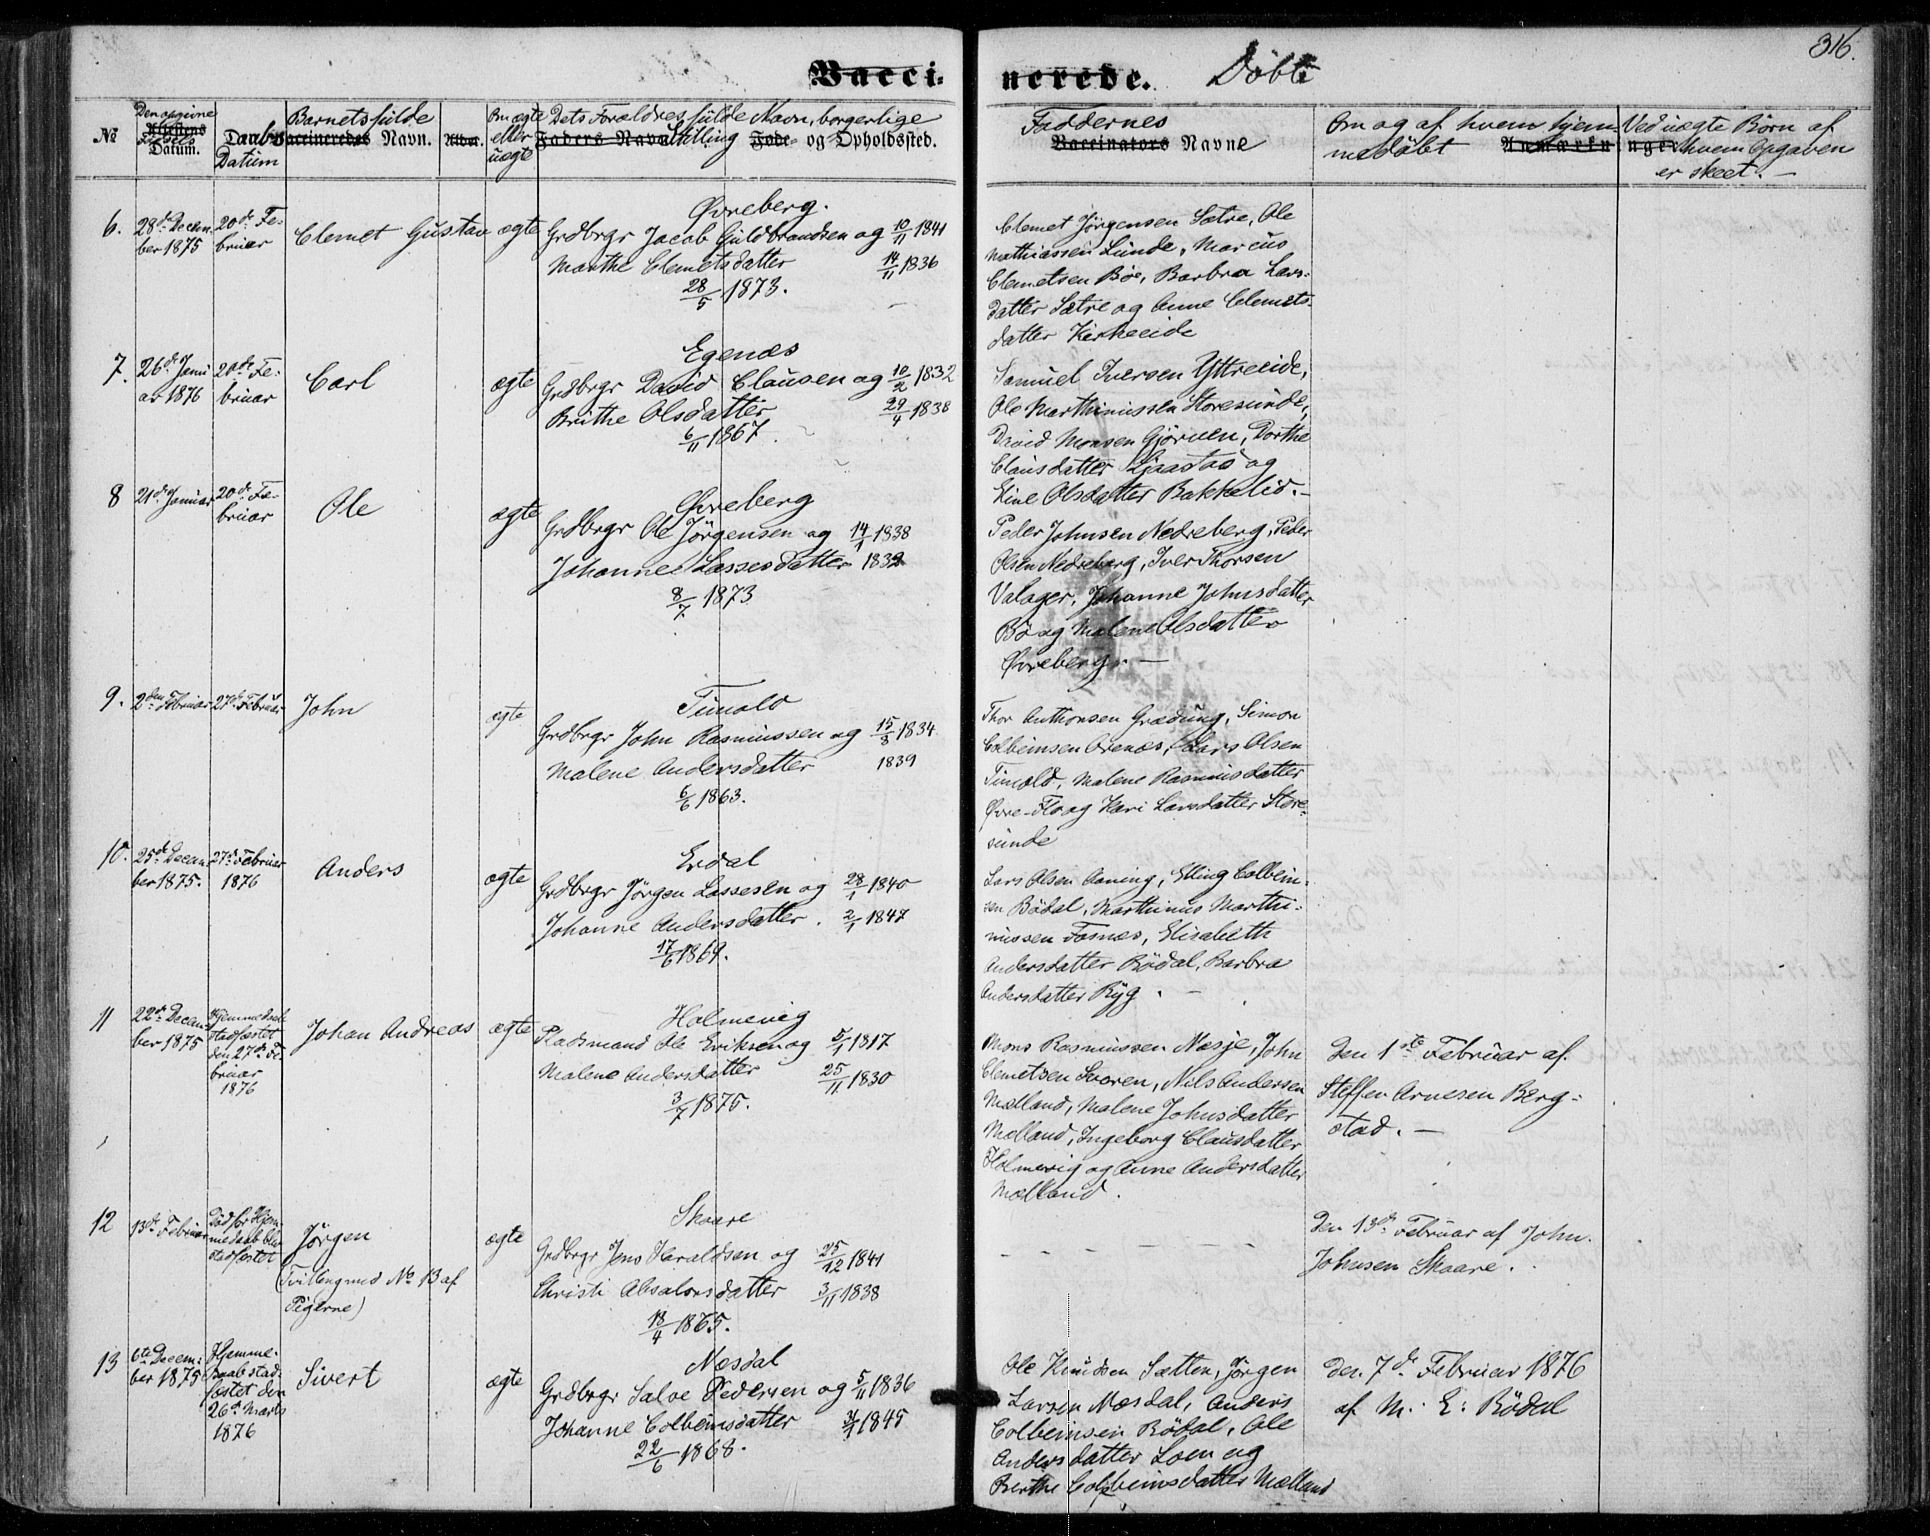 316.
Vacci-
nerede. Döbte
№
Den opgivne Fødsels Datum.
Daabs Datum
Barnets fulde Navn.
Alder.
Om ægte eller uægte
Dets Forældres fulde Navn, borgerlige Stilling og Opholdssted.
Faddernes Navne
Om og af hvem hjemmedøbt
Ved uægte Børn af hvem Opgaven er skeet. -
6.
28de Decem-
ber 1875
20de Fe-
bruar
Clemet Gustav
ægte
Øvreberg.
Grdbrgr Jacob Guldbrandsen og 10/11 1841
Marthe Clemetsdatter 14/11 1836
28/5 1873.
Clemet Jörgensen Sætre, Ole
Mathiassen Lunde, Marcus
Clemetsen Böe, Barbra Lars-
datter Sætre og Anne Clemets-
datter Kirkeeide
7.
26de Janu-
ar 1876
20de Fe-
bruar
Carl
ægte
Egenæs
Grdbrgr David Clausen og 10/2 1832
Brithe Olsdatter 29/4 1838
6/11 1867.
Samuel Iversen Yttreeide,
Ole Marthinussen Storesunde,
David Monsen Gjörven, Dorthe
Clausdatter Ljaastad og
Eline Olsdatter Bakkelid. -
8
21de Januar
20de Fe-
bruar
Ole
ægte
Øvreberg
Grdbrgr Ole Jörgensen og 14/1 1838
Johanne Lassesdatter 1832
8/7 1873
Peder Johnsen Nedreberg, Peder
Olsen Nedreberg, Iver Thorsen
Valager, Johanne Johnsdatter
Bö og Malene Olsdatter
Øvreberg. -
9.
2den Februar
27de Februar
John
ægte
Tunold
Grdbrgr John Rasmussen og 15/8 1834
Malene Andersdatter 1839
6/6 1863.
Thor Anthonsen Grædung, Simon
Colbeinsen Ørenæs, Lars Olsen
Tunold, Malene Rasmusdatter
Øvre-Flo og Kari Larsdatter Store-
sunde
10.
25de Decem-
ber 1875.
27de Februar
1876
Anders
ægte
Erdal
Grdbrgr Jörgen Lassesen og 28/1 1840
Johanne Andersdatter . 2/1 1847
17/6 1869.
Lars Olsen Aaning, Elling Colbein-
sen Bödal, Marthinus Marthi-
nussen Fosnæs, Elisabeth
Andersdatter Bödal, Barbra
Andersdatter Ryg . -
11
22de Decem-
ber 1875
Hjemmedaab
stadfæstet
den 27de Fe-
bruar
1876
Johan Andreas
ægte
Holmevig
Pladsmand Ole Eriksen og 5/1 1817
Malene Andersdatter 25/11 1830
3/7 1875.
Mons Rasmussen Nesje, John
Clemetsen Svoren, Nils Andersen
Mælland, Malene Johnsdatter
Mælland, Ingeborg Clausdatter
Holmevig og Anne Andersdatter
Mælland.
Den 1ste Februar af
Steffen Arnesen Berg-
stad. -
12
13de Februar
Död før Hjem-
medaab blev
stadfæstet
Jørgen
(Tvilling med No 13 af
Pigerne)
ægte
Skaare
Grdbrgr Jens Haraldsen og 25/12 1841
Christi Absalonsdatter 3/11 1838
18/4 1865.
- - - - - - -
Den 13de Februar af John
Johnsen Skaare.
13
6te Decem-
ber 1875
Hjemme-
daab stad-
fæstet den
26de Marts
1876
Sivert
ægte
Næsdal
Grdbrgr Salve Pedersen og 5/11 1836
Johanne Colbeinsdatter 1845
22/6 1868.
Ole Knudsen Sætten, Jørgen
Larsen Næsdal, Anders
Colbeinsen Bödal, Ole
Andersdatter Loen og
Berthe Colbeinsdatter Mælland
Den 7de Februar 1876
af M. E: Bödal